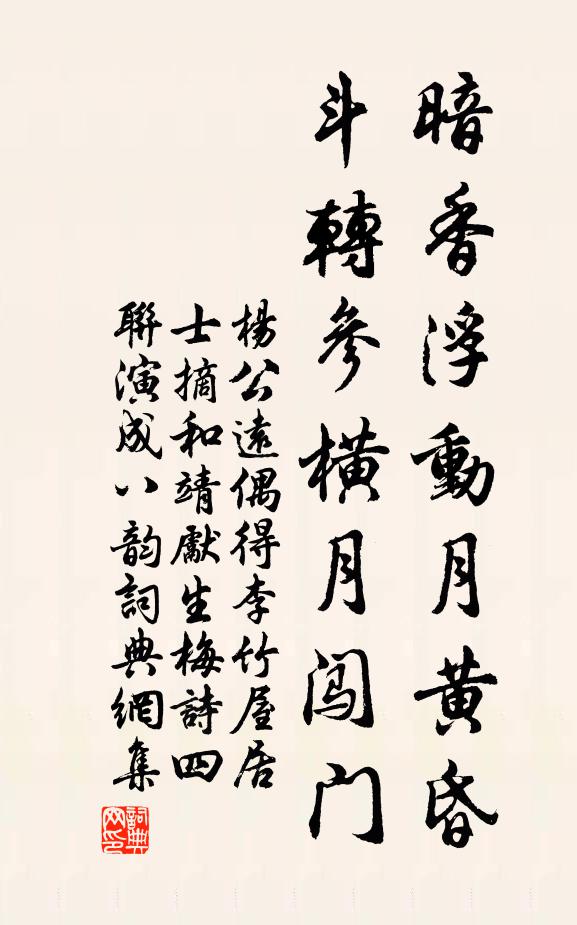 暗香浮動月黄昏
斗轉參橫月闯门
楊公遠偶得李竹屋居
士摘和靖獻生梅詩四
聯演成八韵詞典網集
詞典网印